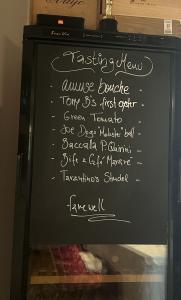 Tasting Menu
amuse bouche
- Tony B's first oyster -
- Green Tomato -
- Joe Dogs " " ball -
- Baccala P. -
- Bife & Café -
- Tarantino's Strudel -
farewell